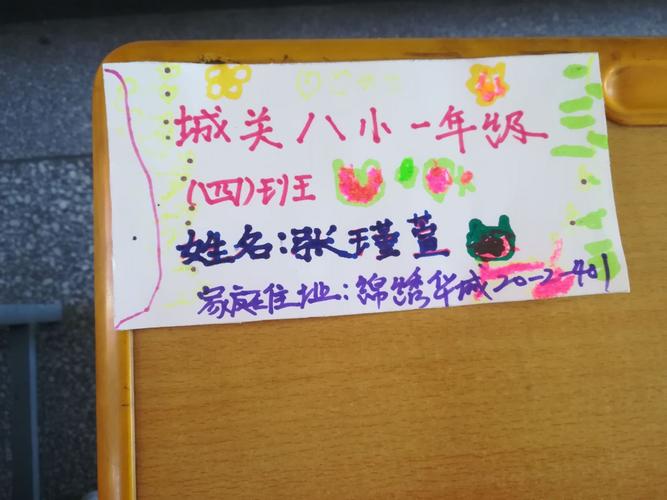 城关八小一年级
(四)班
姓名:张瑾萱
家庭住址:锦绣华城20-2-401